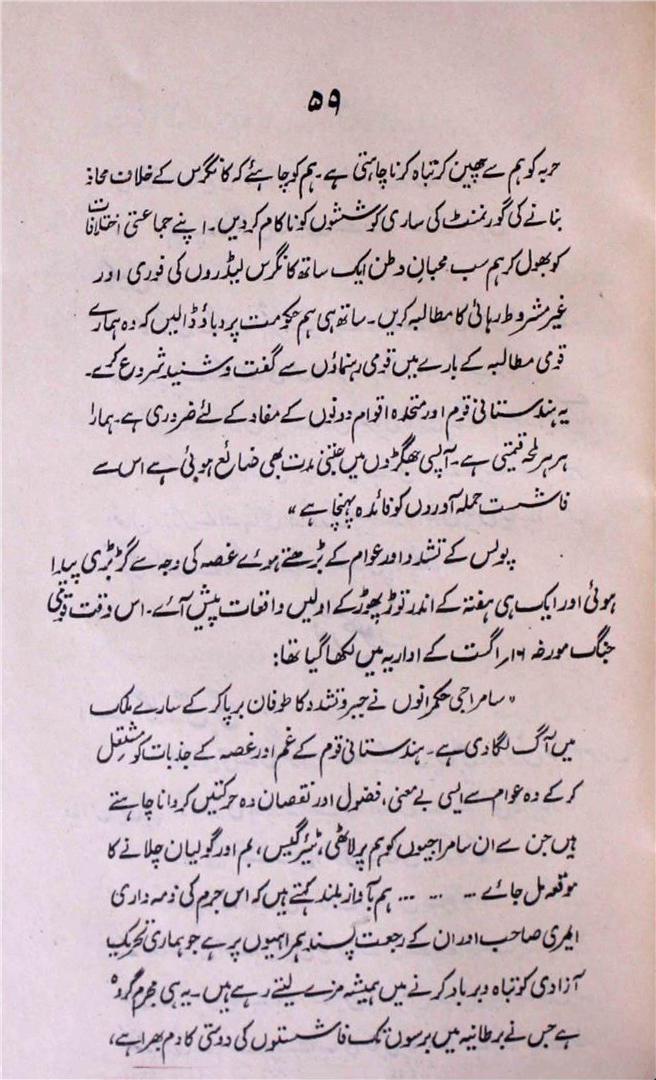 ۵۹
حربہ کو ہم سے چھین کر تباہ کرنا چاہتی ہے۔ ہم کو چاہئے کہ کانگرس کے خلاف محاذ
بنانے کی گورنمنٹ کی ساری کوششوں کو ناکام کردیں۔ اپنے جماعتی اختلافات
کو بھول کر ہم سب محبانِ وطن ایک ساتھ کانگرس لیڈروں کی فوری اور
غیر مشروط رہائی کا مطالبہ کریں۔ ساتھ ہی ہم حکومت پر دباؤ ڈالیں کہ وہ ہمارے
قومی مطالبہ کے بارے میں قومی رہنماؤں سے گفت و شنید شروع کرے۔
یہ ہندستانی قوم اور متحدہ اقوام دونوں کے مفاد کے لئے ضروری ہے۔ ہمارا
ہر ہر لمحہ قیمتی ہے۔ آپسی جھگڑوں میں جتنی مدت بھی ضائع ہوئی ہے اس سے
فاشست حملہ آوروں کو فائدہ پہنچا ہے"
پولس کے تشدد اور عوام کے بڑھتے ہوئے غصہ کی وجہ سے گڑبڑی پیدا
ہوئی اور ایک ہی ہفتہ کے اندر توڑ پھوڑ کے اولیں واقعات پیش آئے۔ اس وقت قومی
جنگ مورخہ ۱۶؍ اگست کے اداریہ میں لکھا گیا تھا:
"سامراجی حکمرانوں نے جبر و تشدد کا طوفان برپا کر کے سارے ملک
میں آگ لگا دی ہے۔ ہندستانی قوم کے غم اور غصہ کے جذبات کو مشتعل
کر کے وہ عوام سے ایسی بے معنی، فضول اور نقصان دہ حرکتیں کروانا چاہتے
ہیں جن سے ان سامراجیوں کو ہم پر لاٹھی، ٹیئر گیس، بم اور گولیان چلانے کا
موقعہ مل جائے ... ... ... ہم بآواز بلند کہتے ہیں کہ اس جرم کی ذمہ داری
ایمری صاحب اور ان کے رجعت پسند ہمراہیوں پر ہے جو ہماری تحریک
آزادی کو تباہ و برباد کرنے میں ہمیشہ مزے لیتے رہے ہیں۔ یہ ہی مجرم گروہ
ہے جس نے برطانیہ میں برسوں تک فاشستوں کی دوستی کا دم بھرا ہے،